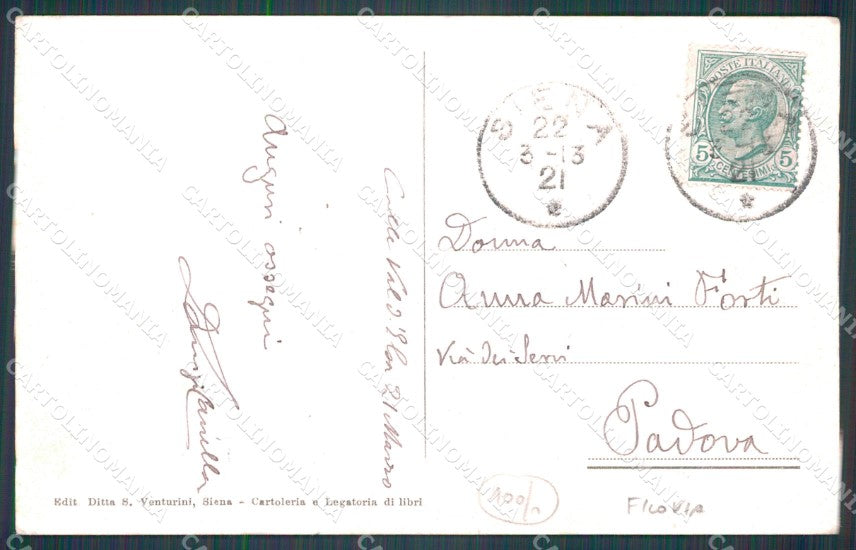 Auguri ossequi
Colle Val d'Elsa 21 Marzo
Edit Ditta S. Venturini, Siena - Cartoleria e Legatoria di libri
SIENA
22
3-13
21
POSTE ITALIANE
5 5
CENTESIMI
Donna
Anna Marini Forti
Via dei Servi
Padova
100/-
CARTOLINOMANIA